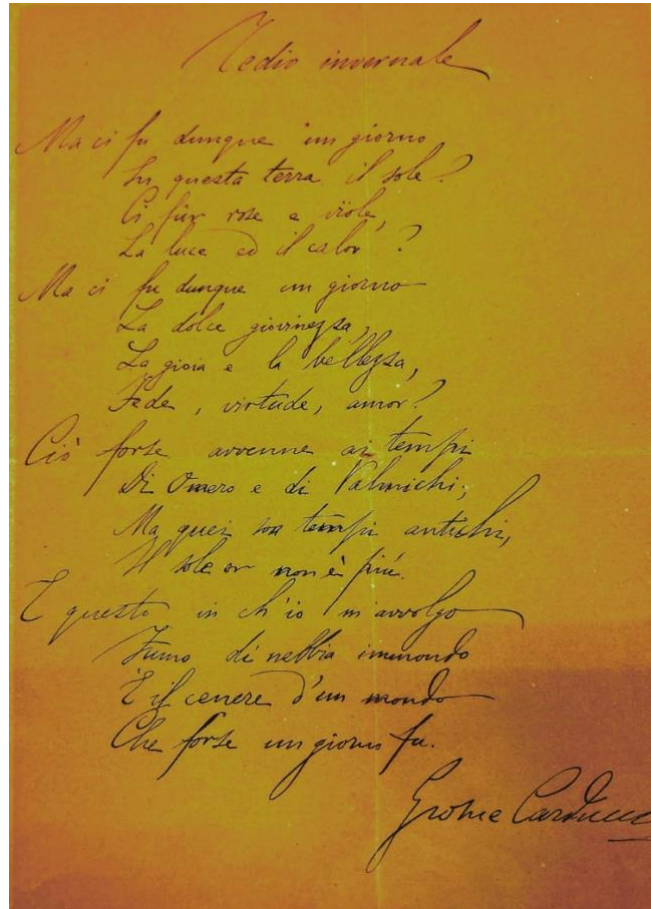 Tedio invernale
Ma ci fu dunque un giorno
Su questa terra il sole?
Ci fûr rose e viole,
La luce ed il calor?
Ma ci fu dunque un giorno
La dolce giovinezza,
La gioia e la bellezza,
Fede, virtude, amor?
Ciò forse avvenne ai tempi
Di Omero e di Valmichi;
Ma quei son tempi antichi,
Il sole or non è più.
E questo in ch'io m'avvolgo
Fumo di nebbia immondo
È il cenere d'un mondo
Che forse un giorno fu.
Giosue Carducci